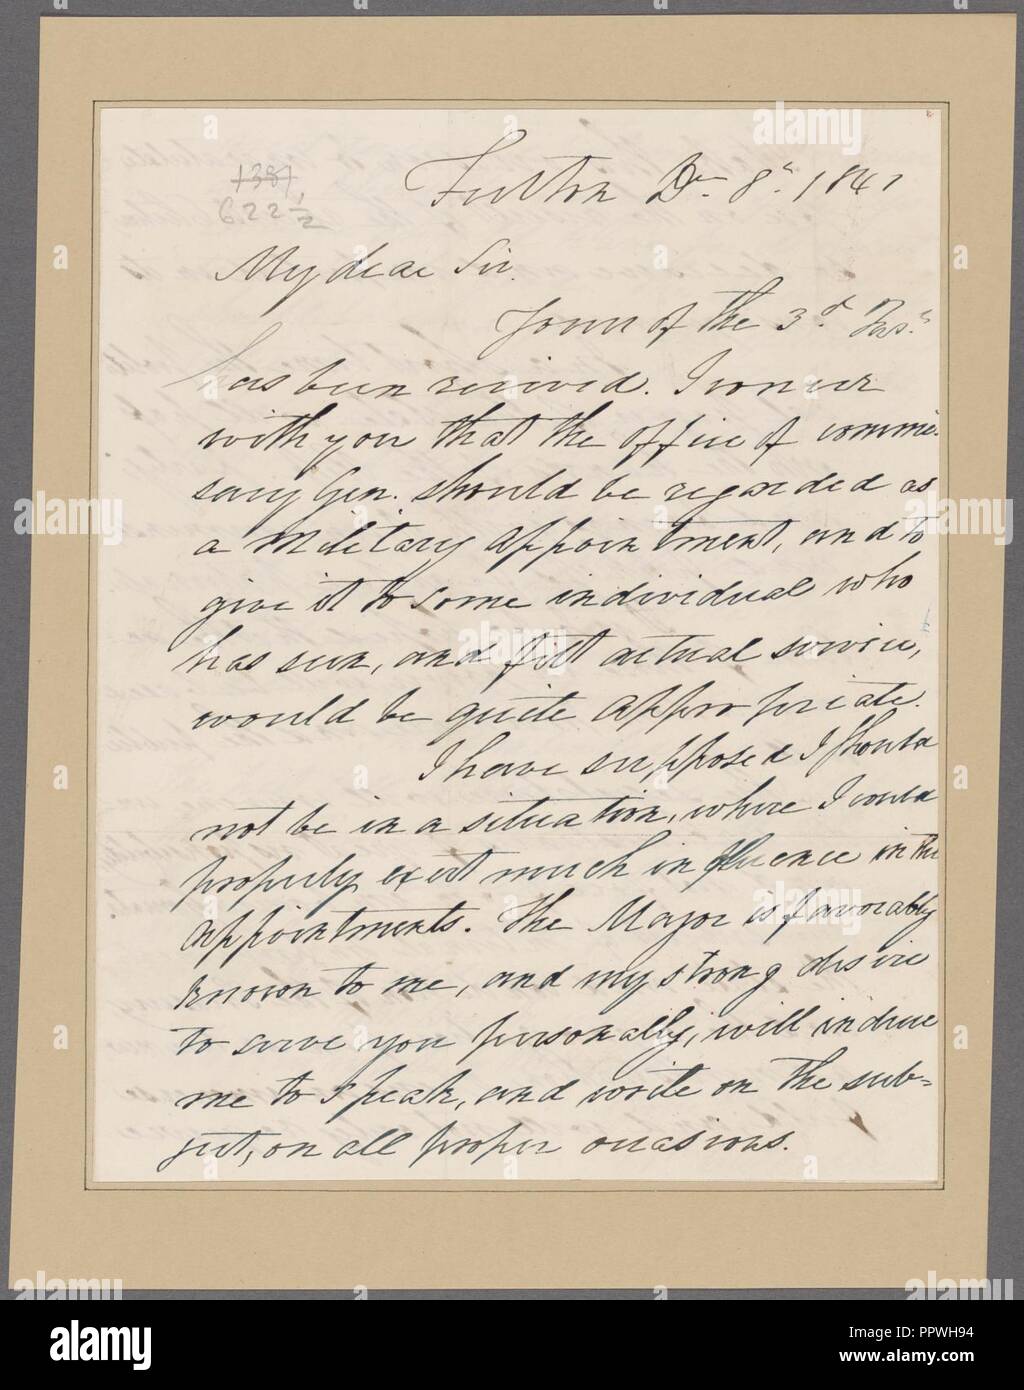 1381
622 1/2
Fulton Dr. 8th 1841
My dear Sir.
Yours of the 3d
has been received. I concur
with you that the office of commis-
sary Gen. should be regarded as
a Military appointment, and to
give it to some individual who
has seen, and felt actual service,
would be quite appropriate.
I have supposed I should
not be in a situation, where I could
properly exert much influence in the
appointments. The Major is favorably
known to me, and my strong desire
to serve you personally, will induce
me to speak, and write on the sub=
ject, on all proper occasions.
alamy
Image ID: PPWH94
www.alamy.com